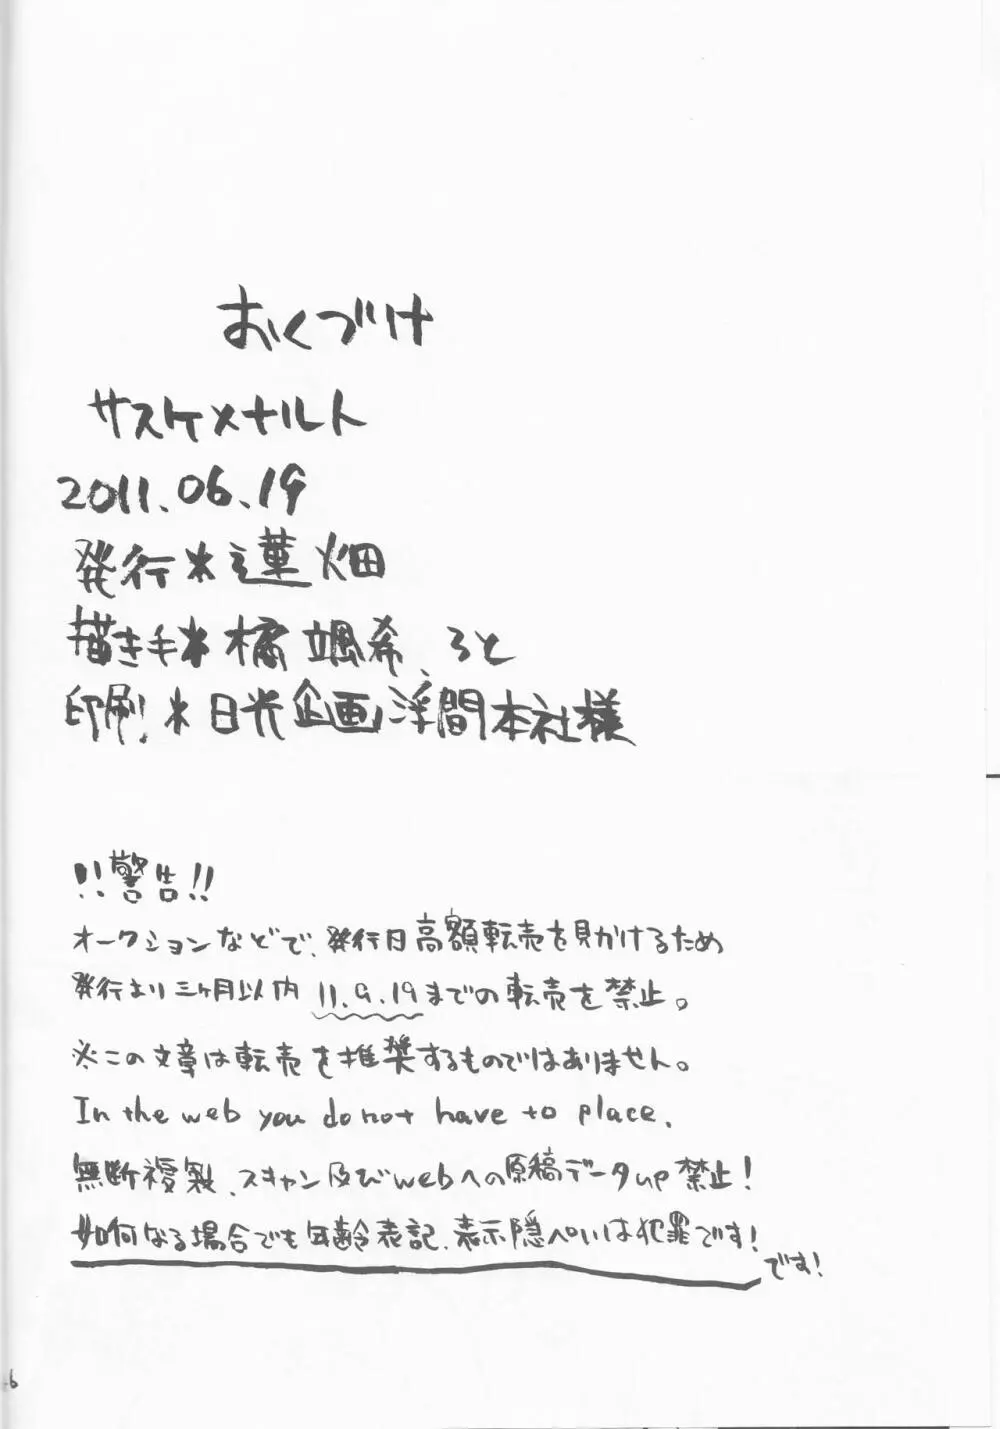 おくづけ
サスケ×ナルト
2011.06.19
発行*蓮畑
描き手*橘颯希、ろと
印刷*日光企画浮間本社様
!!警告!!
オークションなどで、発行日高額転売を見かけるため
発行より三ヶ月以内 11.9.19までの転売を禁止。
※この文章は転売を推奨するものではありません。
In the web you do not have to place.
無断複製、スキャン及びwebへの原稿データup禁止!
如何なる場合でも年齢表記、表示隠ぺいは犯罪です!
です!
6